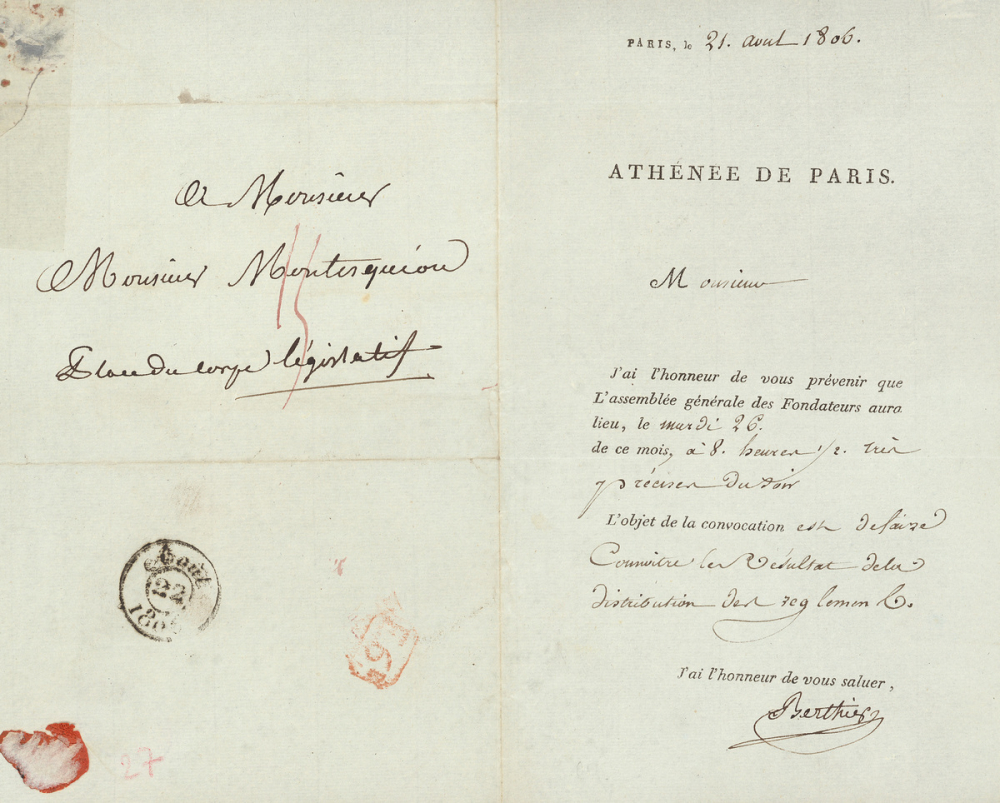 A Monsieur
Monsieur Montesquiou
Place du corps législatif
Août
22
1806
27
PARIS, le 21. aout 1806.
ATHÉNEE DE PARIS.
Monsieur
J'ai l'honneur de vous prévenir que
L'assemblée générale des Fondateurs aura
lieu, le mardi 26.
de ce mois, à 8. heures 1/2. très
précises du soir
L'objet de la convocation est de faire
Connoitre le Résultat de la
distribution des reglemens.
J'ai l'honneur de vous saluer,
Berthier